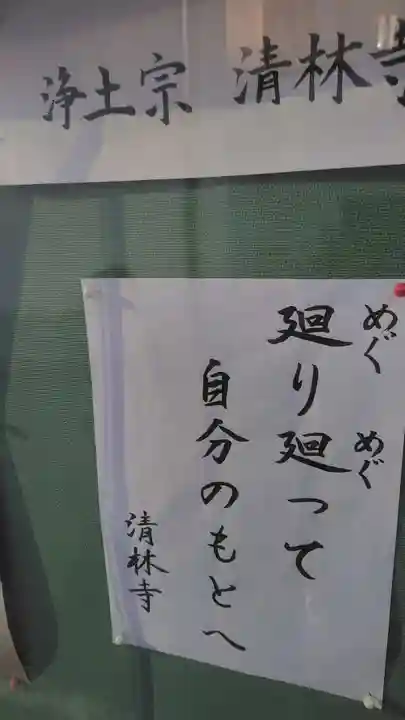 浄土宗 清林寺
廻り廻って
めぐ めぐ
自分のもとへ
清林寺